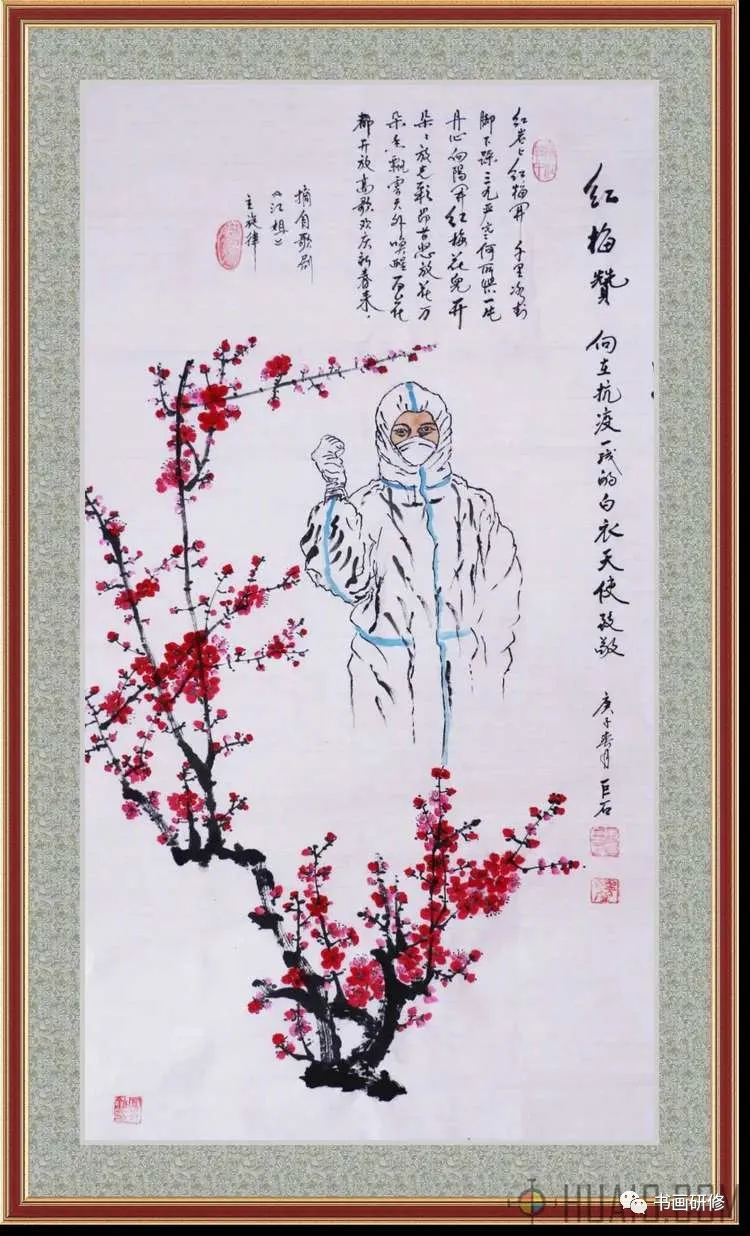 红梅赞
向在抗疫一线的白衣天使致敬
庚子春月 巨石
红岩上红梅开 千里冰封
脚下踩三九严寒何所惧一片
丹心向阳开红梅花儿开
朵々放光彩昂首怒放花万
朵香飘云天外唤醒百花
都开放高歌欢庆新春来。
摘自歌剧
《江姐》
主旋律
书画研修
HUA10.COM